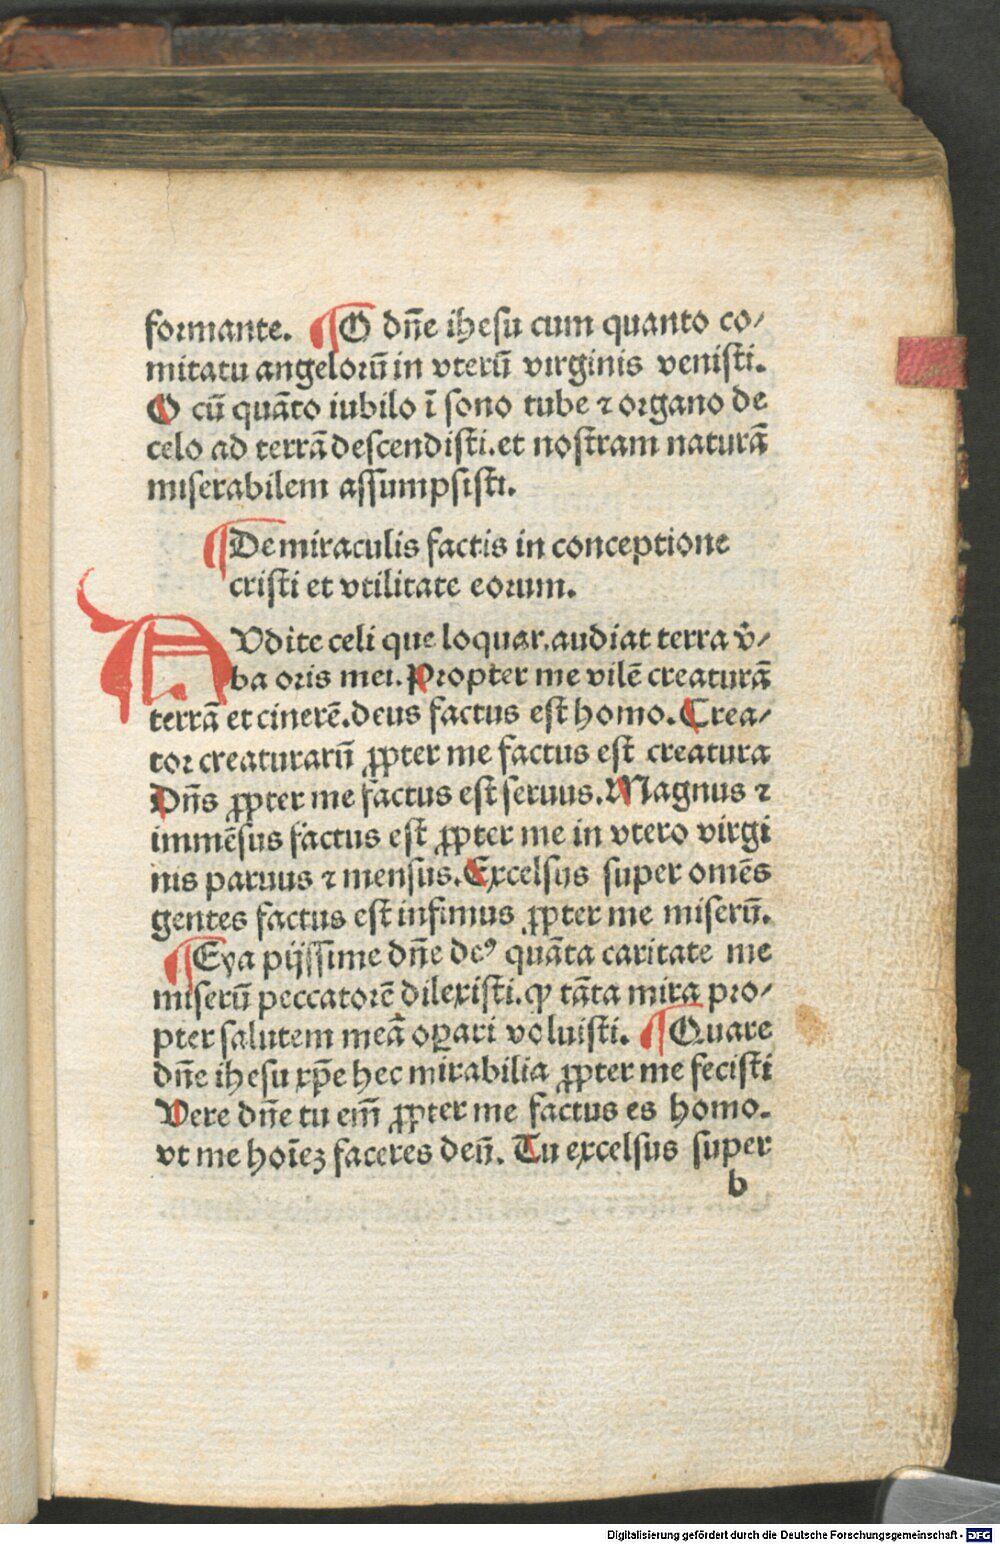 formante. ¶O dn̄e ihesu cum quanto co/
mitatu angeloꝛū in vterū virginis venisti.
O cū quāto iubilo ī sono tube ⁊ oꝛgano de
celo ad terrā descendisti.et nostram naturā
miserabilem assumpsisti.
¶De miraculis factis in conceptione
cristi et vtilitate eoꝛum.
AVdite celi que loquar.audiat terra v̄/
ba oꝛis mei.Pꝛopter me vilē creaturā
terrā et cinerē.deus factus est homo.Crea/
toꝛ creaturarū ꝓpter me factus est creatura
Dn̄s ꝓpter me factus est seruus.Magnus ⁊
immēsus factus est ꝓpter me in vtero virgi
nis paruus ⁊ mensus.Excelsus super omēs
gentes factus est infimus ꝓpter me miserū.
¶Eya pijssime dn̄e deꝰ quāta caritate me
miserū peccatoꝛē dilexisti.ꝙ tāta mira pꝛo/
pter salutem meā oꝑari voluisti. ¶Quare
dn̄e ihesu xp̄e hec mirabilia ꝓpter me fecisti
Vere dn̄e tu em̄ ꝓpter me factus es homo.
vt me hoīeꝫ faceres deū. Tu excelsus super
b
Digitalisierung gefördert durch die Deutsche Forschungsgemeinschaft - DFG